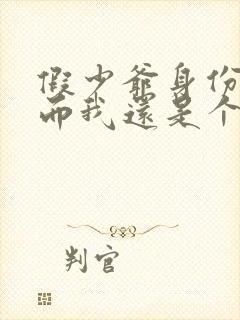 假少爷身份
而我还是个
判官